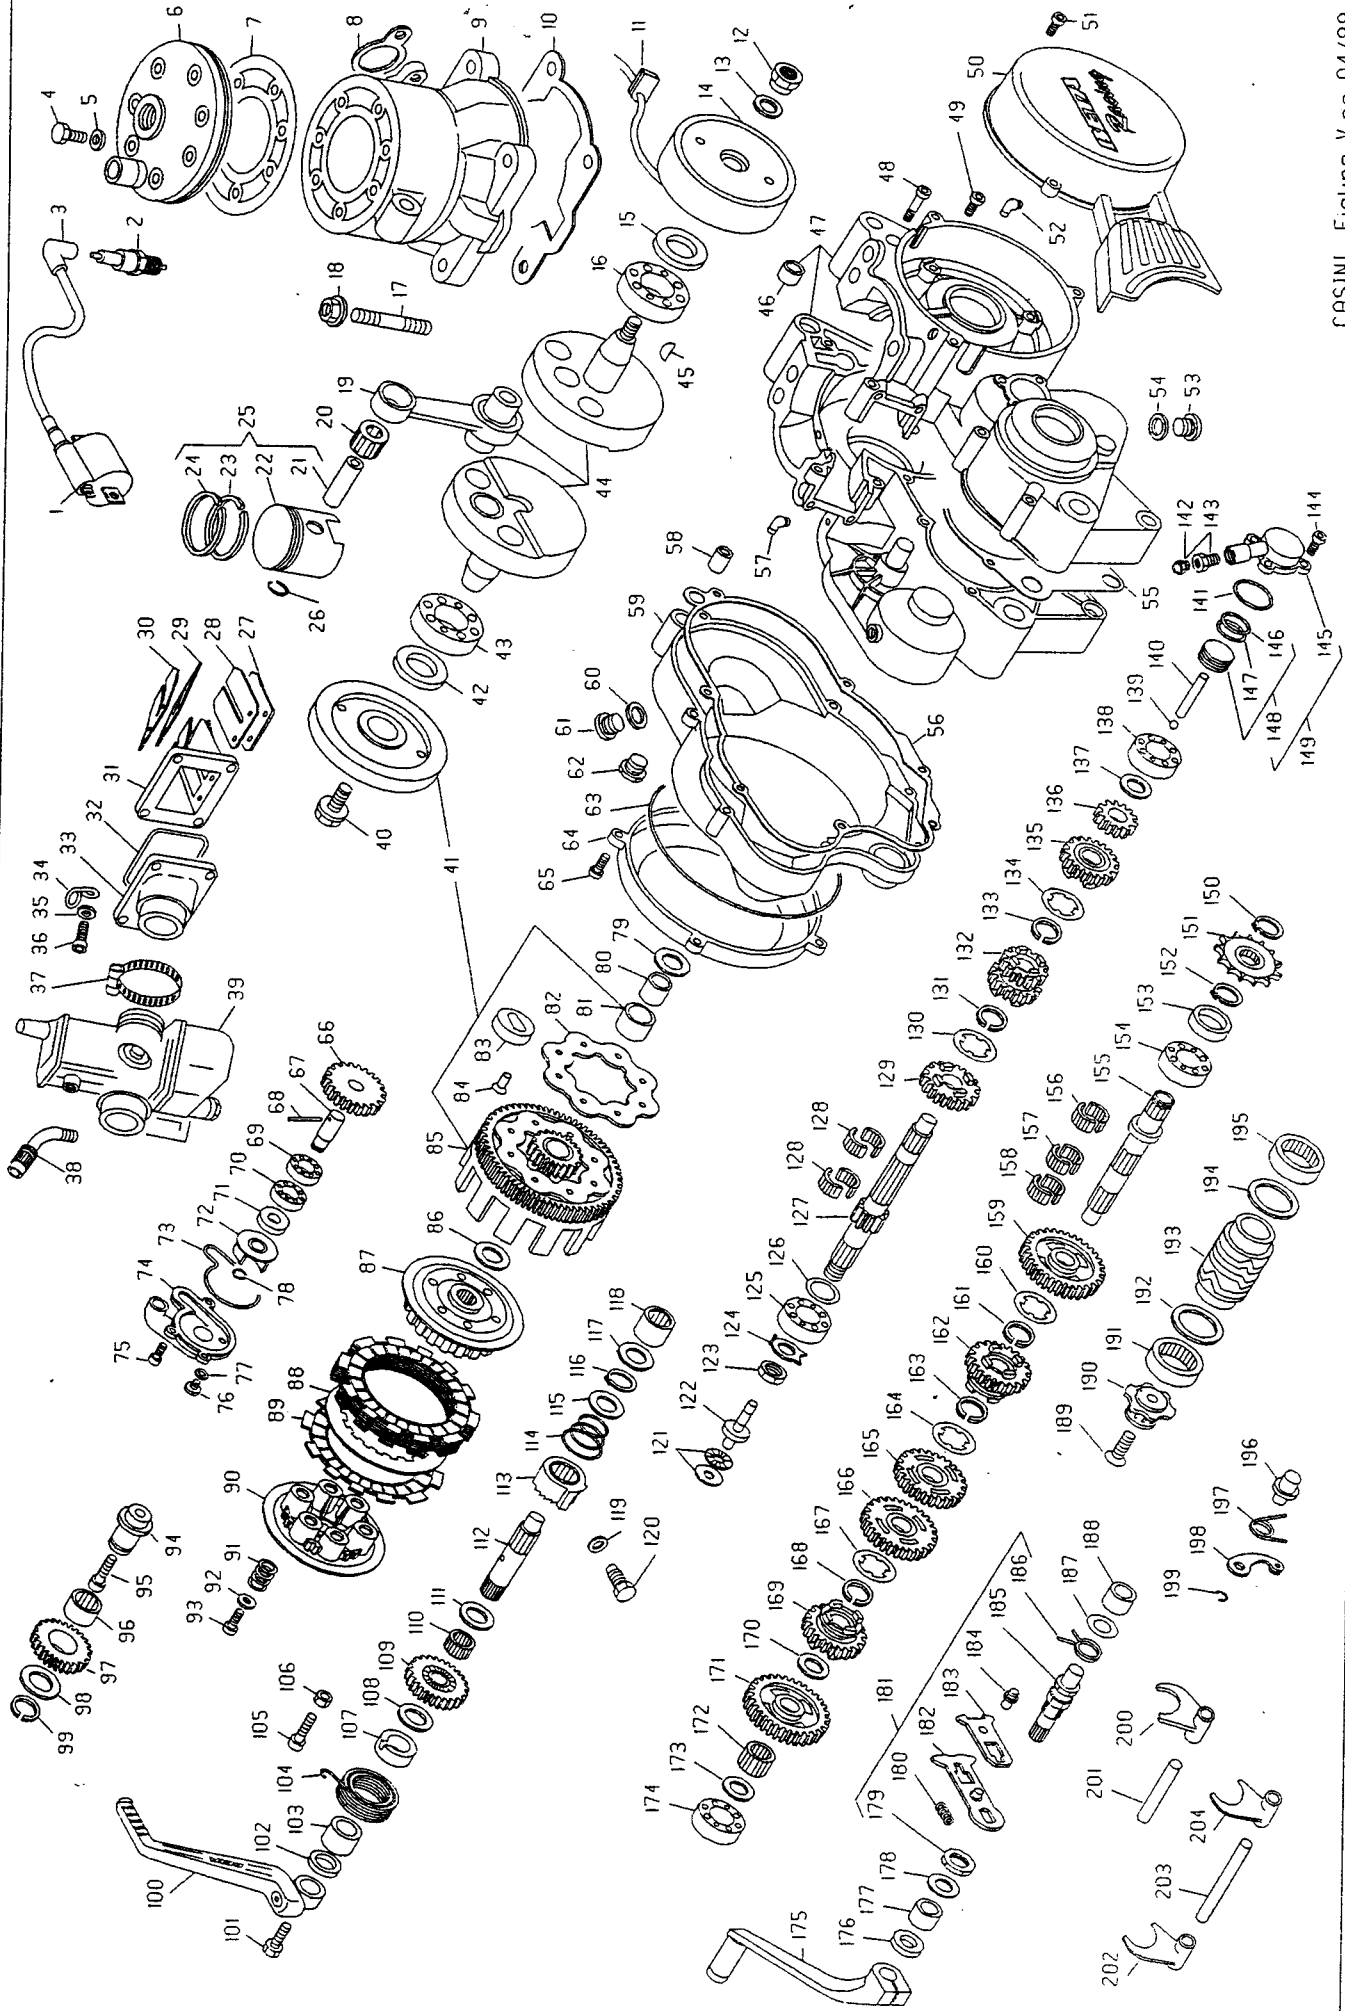 1
2
3
4
5
6
7
8
9
10
11
12
13
14
15
16
17
18
19
20
21
22
23
24
25
26
27
28
29
30
31
32
33
34
35
36
37
38
39
40
41
42
43
44
45
46
47
48
49
50
51
52
53
54
55
56
57
58
59
60
61
62
63
64
65
66
67
68
69
70
71
72
73
74
75
76
77
78
79
80
81
82
83
84
85
86
87
88
89
90
91
92
93
94
95
96
97
98
99
100
101
102
103
104
105
106
107
108
109
110
111
112
113
114
115
116
117
118
119
120
121
122
123
124
125
126
127
128
128
129
130
131
132
133
134
135
136
137
138
139
140
141
142
143
144
145
146
147
148
149
150
151
152
153
154
155
156
157
158
159
160
161
162
163
164
165
166
167
168
169
170
171
172
173
174
175
176
177
178
179
180
181
182
183
184
185
186
187
188
189
190
191
192
193
194
195
196
197
198
199
200
201
202
203
204
Racing
CASINI